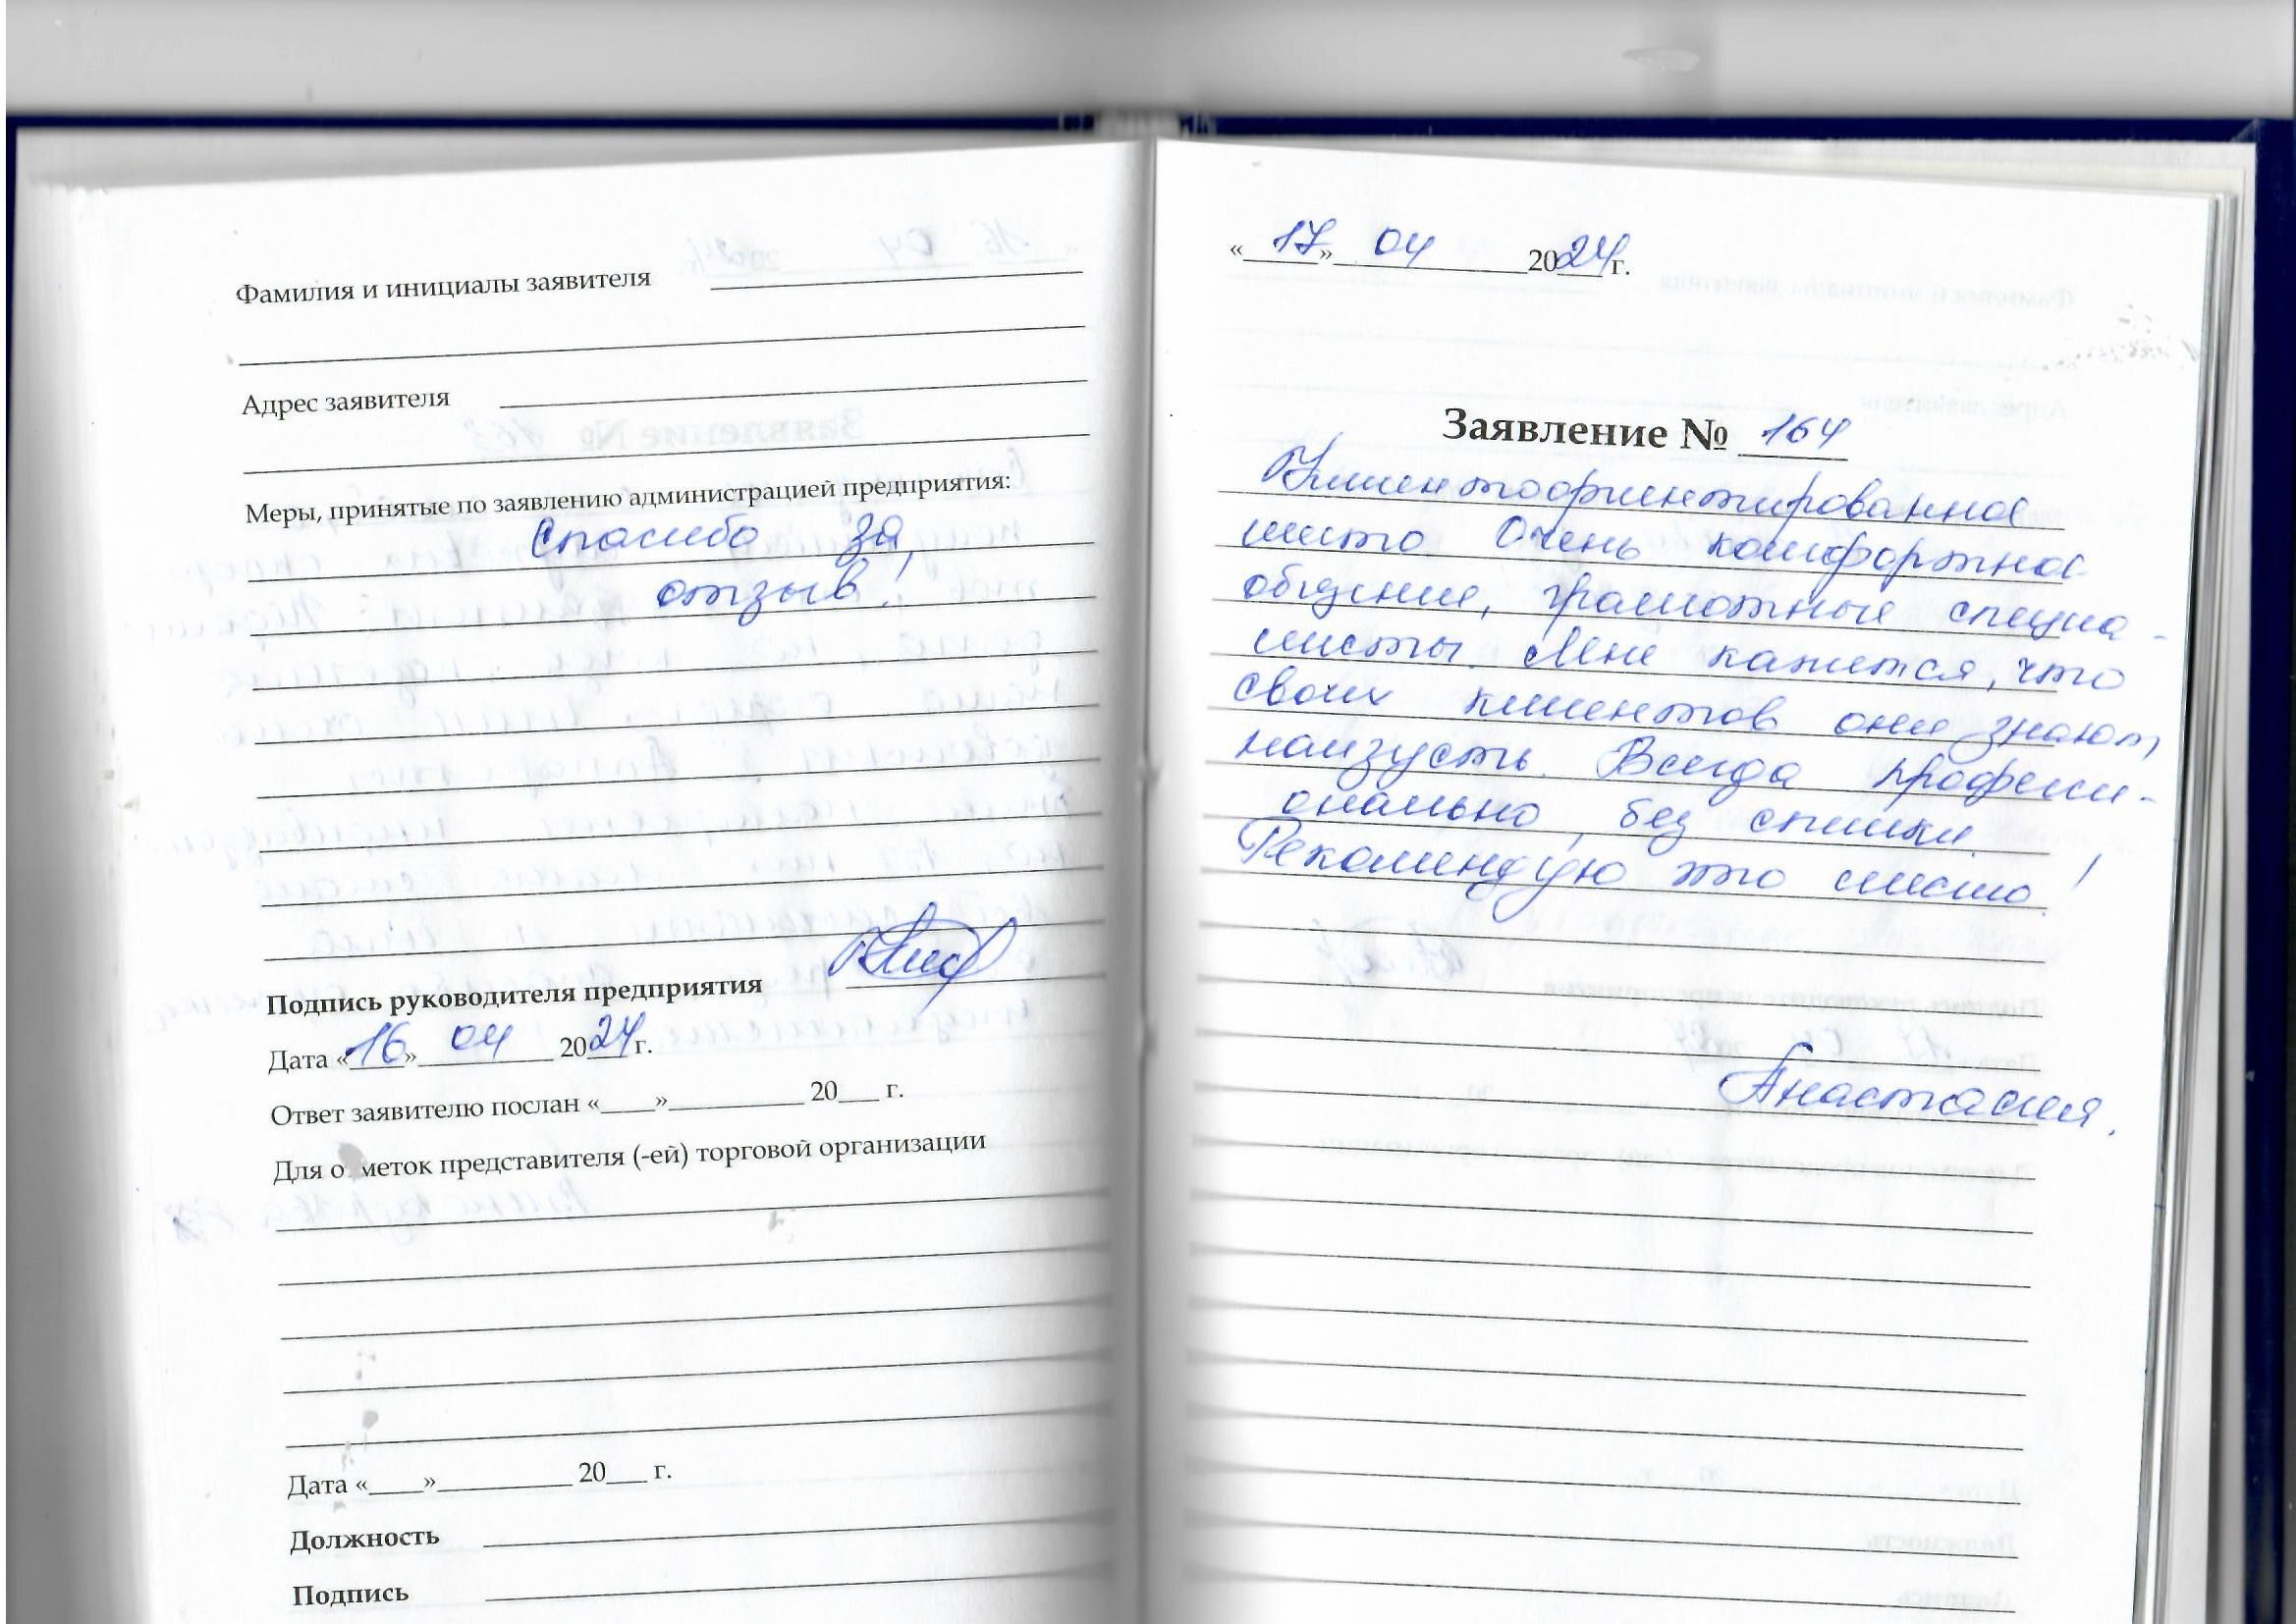 Фамилия и инициалы заявителя
Адрес заявителя
Меры, принятые по заявлению администрацией предприятия:
Спасибо за
отзыв!
Подпись руководителя предприятия
Дата «16» 04 2024 г.
Ответ заявителю послан «____»__________ 20___ г.
Для отметок представителя (-ей) торговой организации
Дата «____»__________ 20___ г.
Должность
Подпись
«17» 04 2024 г.
Заявление № 164
Клиентоориентированное
место. Очень комфортное
общение, грамотные специа-
листы. Мне кажется, что
своих клиентов они знают
наизусть. Всегда професси-
онально, без спешки.
Рекомендую это место!
Анастасия.